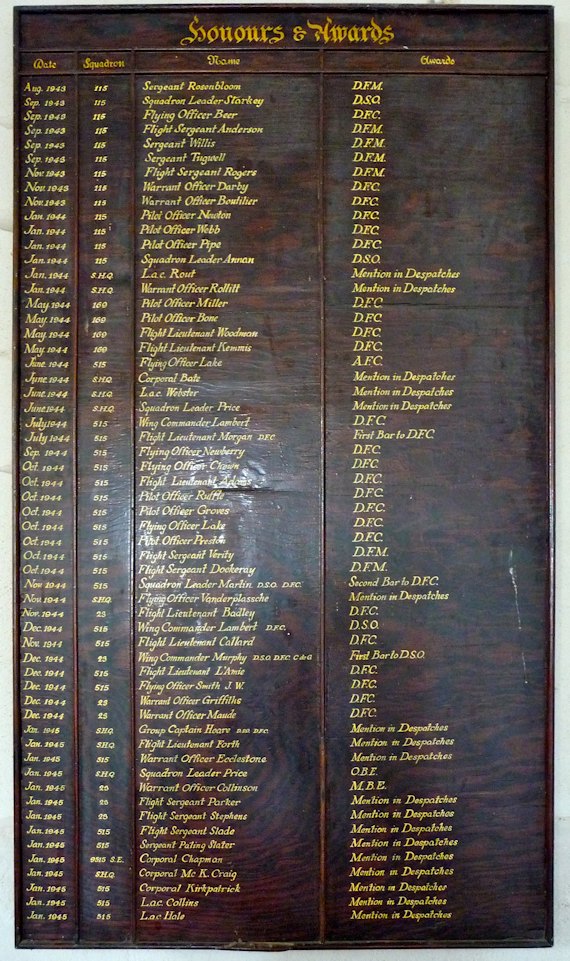 Honours & Awards
Date Squadron Name Awards
Aug. 1943 115 Sergeant Rosenbloom D.F.M.
Sep. 1943 115 Squadron Leader Starkey D.S.O.
Sep. 1943 115 Flying Officer Beer D.F.C.
Sep. 1943 115 Flight Sergeant Anderson D.F.M.
Sep. 1943 115 Sergeant Willis D.F.M.
Sep. 1943 115 Sergeant Tugwell D.F.M.
Nov. 1943 115 Flight Sergeant Rogers D.F.M.
Nov. 1943 115 Warrant Officer Darby D.F.C.
Nov. 1943 115 Warrant Officer Boutilier D.F.C.
Jan. 1944 115 Pilot Officer Newton D.F.C.
Jan. 1944 115 Pilot Officer Webb D.F.C.
Jan. 1944 115 Pilot Officer Pipe D.F.C.
Jan. 1944 115 Squadron Leader Annan D.S.O.
Jan. 1944 S.H.Q. L.a.c. Rout Mention in Despatches
Jan. 1944 S.H.Q. Warrant Officer Rollitt Mention in Despatches
May 1944 169 Pilot Officer Miller D.F.C
May. 1944 169 Pilot Officer Bone D.F.C
May. 1944 169 Flight Lieutenant Woodman D.F.C.
May. 1944 169 Flight Lieutenant Kemmis D.F.C.
June. 1944 515 Flying Officer Lake A.F.C.
June. 1944 S.H.Q. Corporal Bate Mention in Despatches
June. 1944 S.H.Q. L.a.c. Webster Mention in Despatches
June. 1944 S.H.Q. Squadron Leader Price Mention in Despatches
July 1944 515 Wing Commander Lambert D.F.C.
July 1944 515 Flight Lieutenant Morgan D.F.C. First Bar to D.F.C.
Sep. 1944 515 Flying Officer Newberry D.F.C.
Oct. 1944 515 Flying Officer Chown D.F.C.
Oct. 1944 515 Flight Lieutenant Adams D.F.C.
Oct. 1944 515 Pilot Officer Ruffle D.F.C.
Oct. 1944 515 Pilot Officer Groves D.F.C.
Oct. 1944 515 Flying Officer Lake D.F.C.
Oct. 1944 515 Pilot Officer Preston D.F.C.
Oct. 1944 515 Flight Sergeant Verity D.F.M.
Oct. 1944 515 Flight Sergeant Dockeray D.F.M.
Nov 1944 515 Squadron Leader Martin D.S.O. D.F.C. Second Bar to D.F.C.
Nov. 1944 S.H.Q. Flying Officer Vanderplassche Mention in Despatches
Nov. 1944 23 Flight Lieutenant Badley D.F.C.
Dec. 1944 515 Wing Commander Lambert D.F.C. D.S.O.
Nov. 1944 515 Flight Lieutenant Callard D.F.C.
Dec. 1944 23 Wing Commander Murphy D.S.O. D.F.C. C de G First Bar to D.S.O.
Dec. 1944 515 Flight Lieutenant L'Amie D.F.C.
Dec. 1944 515 Flying Officer Smith J. W. D.F.C.
Dec. 1944 23 Warrant Officer Griffiths D.F.C.
Dec. 1944 23 Warrant Officer Maude D.F.C.
Jan. 1945 S.H.Q. Group Captain Hoare D.S.O. D.F.C. Mention in Despatches
Jan. 1945 S.H.Q. Flight Lieutenant Forth Mention in Despatches
Jan. 1945 515 Warrant Officer Ecclestone Mention in Despatches
Jan. 1945 S.H.Q Squadron Leader Price O.B.E.
Jan. 1945 23 Warrant Officer Collinson M.B.E.
Jan. 1945 23 Flight Sergeant Parker Mention in Despatches
Jan. 1945 23 Flight Sergeant Stephens Mention in Despatches
Jan. 1945 515 Flight Sergeant Slade Mention in Despatches
Jan. 1945 515 Sergeant Slater Mention in Despatches
Jan. 1945 9515 S.E. Corporal Chapman Mention in Despatches
Jan. 1945 S.H.Q. Corporal Mc K. Craig Mention in Despatches
Jan. 1945 515 Corporal Kirkpatrick Mention in Despatches
Jan. 1945 515 L.a.c Collins Mention in Despatches
Jan. 1945 515 L.a.c Hole Mention in Despatches